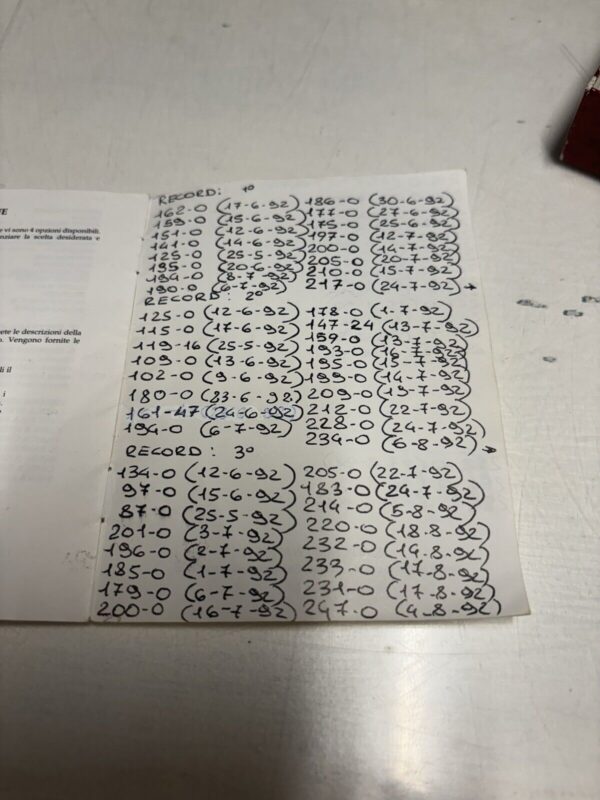 NE
e vi sono 4 opzioni disponibili.
enziare la scelta desiderata e
ete le descrizioni della
o. Vengono fornite le
di il
RECORD: 1º
162-0 (17-6-92) 186-0 (30-6-92)
159-0 (15-6-92) 177-0 (27-6-92)
151-0 (12-6-92) 175-0 (25-6-92)
141-0 (14-6-92) 197-0 (12-7-92)
125-0 (25-5-92) 200-0 (14-7-92)
195-0 (20-6-92) 205-0 (20-7-92)
194-0 (8-7-92) 210-0 (15-7-92)
190-0 (6-7-92) 217-0 (24-7-92) →
RECORD: 2º
125-0 (12-6-92) 178-0 (1-7-92)
115-0 (17-6-92) 147-24 (13-7-92)
119-16 (25-5-92) 159-0 (13-7-92)
109-0 (13-6-92) 193-0 (16-7-92)
102-0 (9-6-92) 195-0 (15-7-92)
180-0 (23-6-92) 199-0 (14-7-92)
161-47 (24-6-92) 209-0 (19-7-92)
194-0 (6-7-92) 212-0 (22-7-92)
228-0 (24-7-92)
234-0 (6-8-92) →
RECORD: 3º
134-0 (12-6-92) 205-0 (22-7-92)
97-0 (15-6-92) 183-0 (24-7-92)
87-0 (25-5-92) 214-0 (5-8-92)
201-0 (3-7-92) 220-0 (18-8-92)
196-0 (2-7-92) 232-0 (19-8-92)
185-0 (1-7-92) 233-0 (17-8-92)
179-0 (6-7-92) 231-0 (17-8-92)
200-0 (16-7-92) 247-0 (4-8-92)